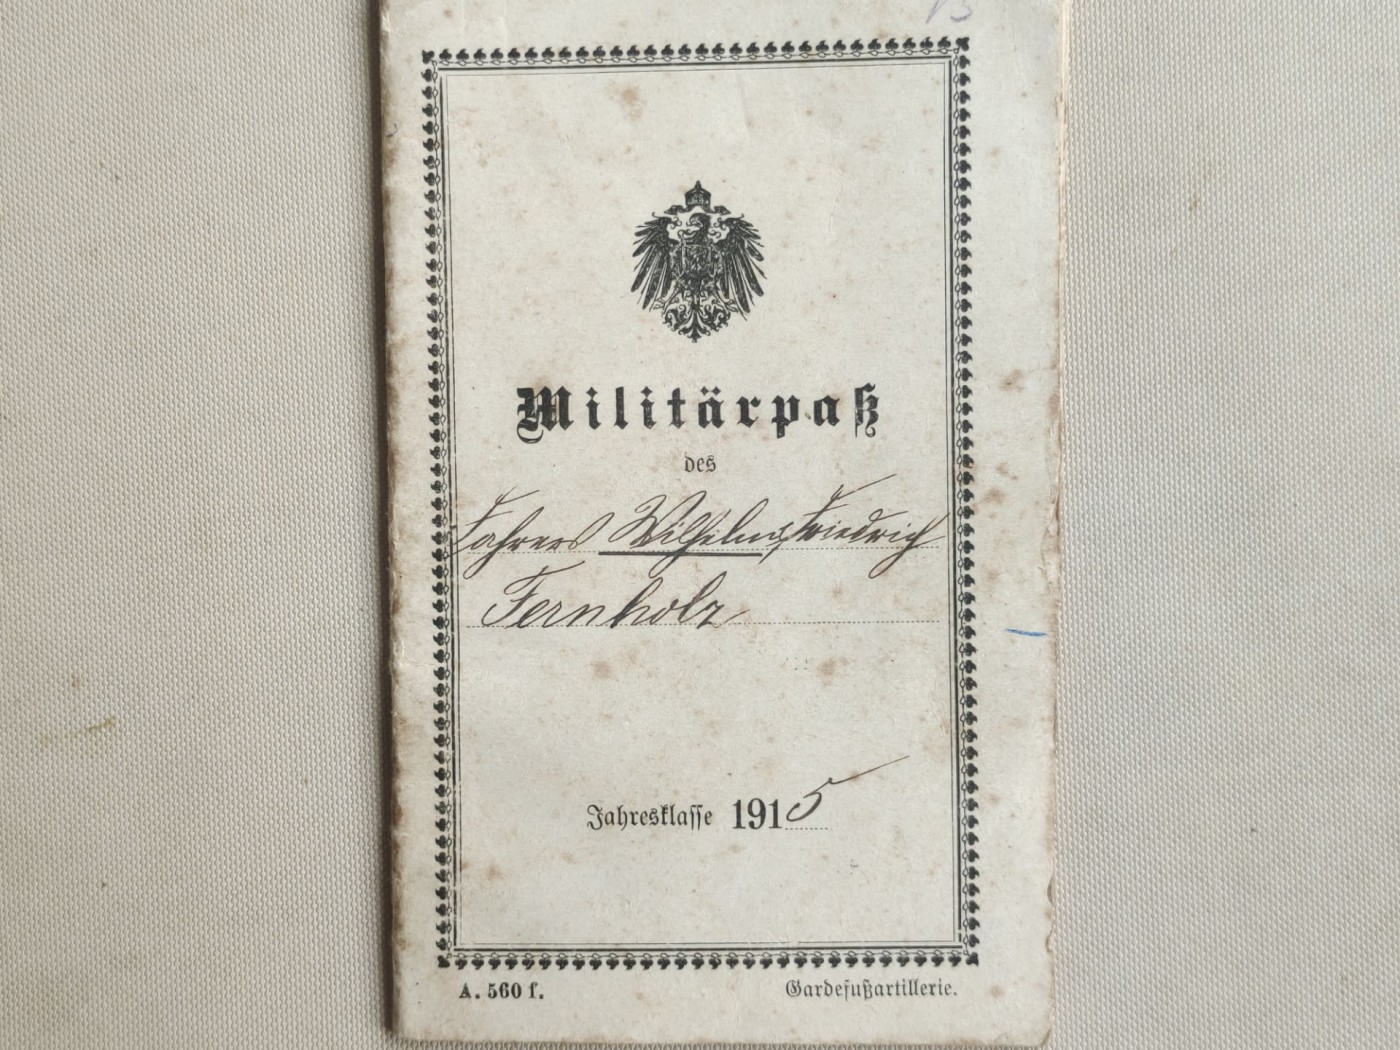 Militärpaß
des
Fahrers Wilhelm Friedrich
Fernholz
Jahresklasse 1915
A. 560 f. Gardefußartillerie.